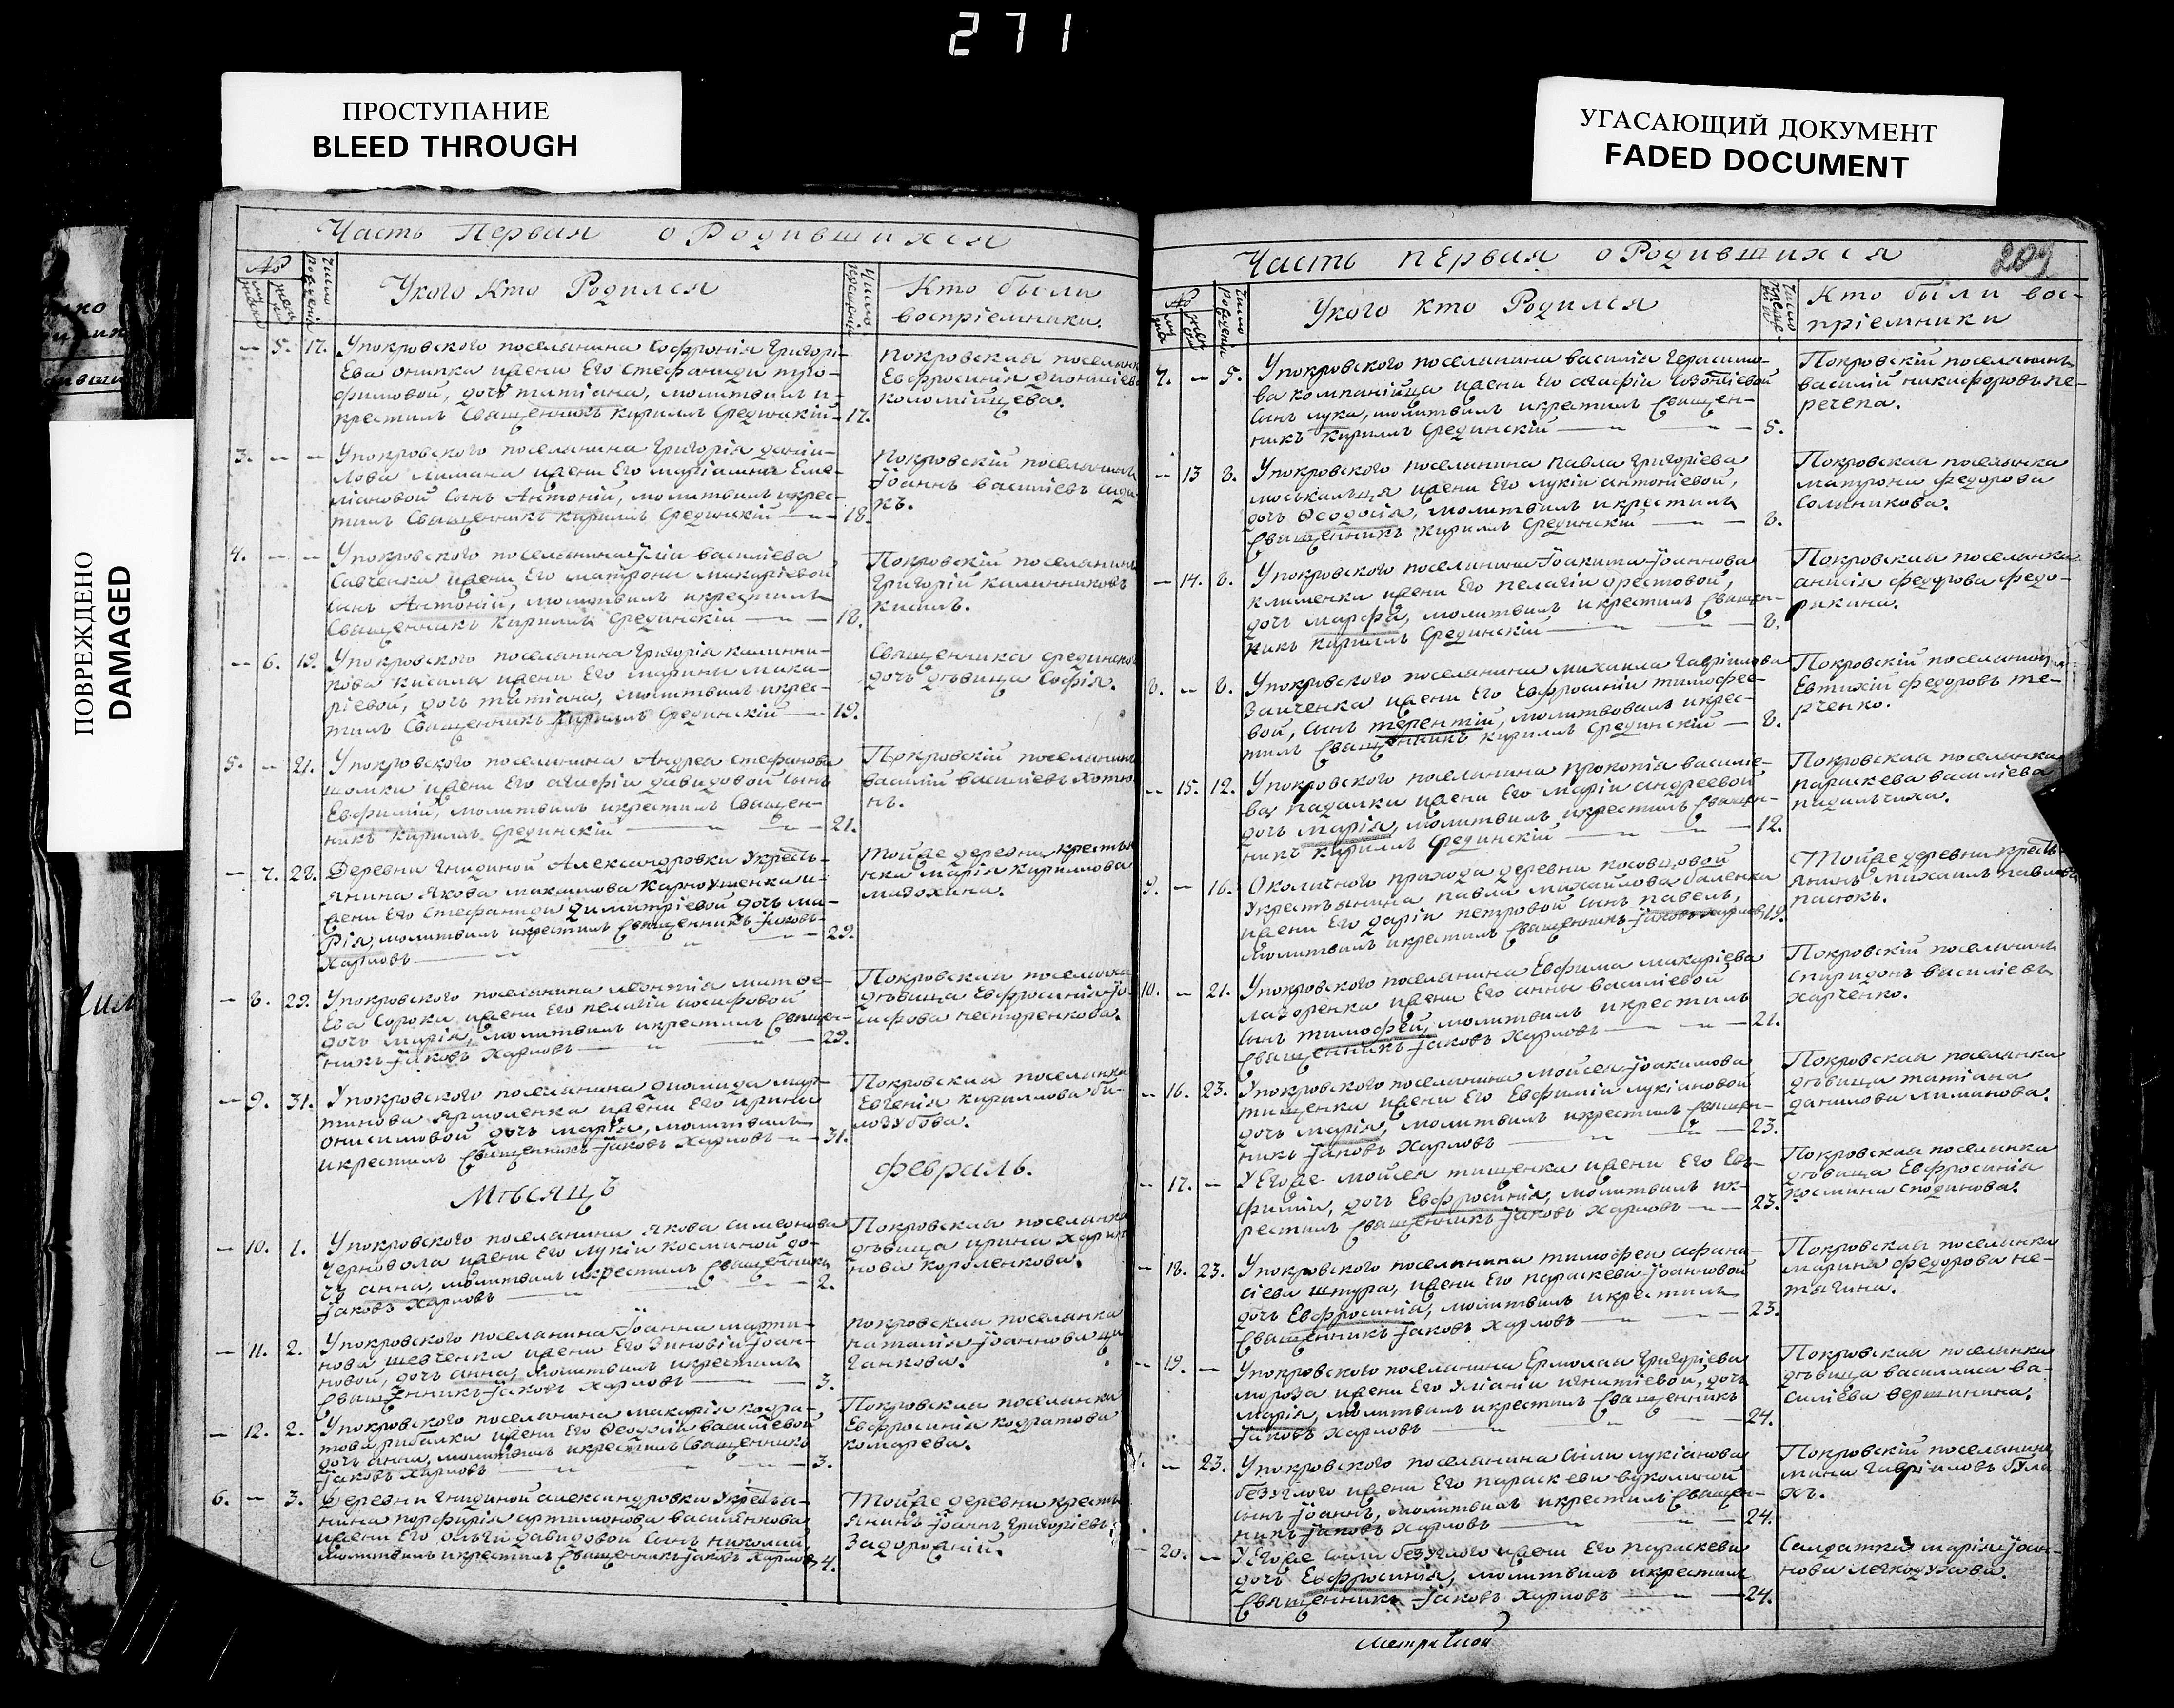 271
ПРОСТУПАНИЕ
BLEED THROUGH
УГАСАЮЩИЙ ДОКУМЕНТ
FADED DOCUMENT
ПОВРЕЖДЕНО
DAMAGED
Часть Первая о Родившихся
№
Число рождения
У кого кто Родился
Число крещения
Кто были
воспріемники.
5. 17. У покровского поселянина Софронія Григорі-
ева жени Его Стефаниди тро-
фимовой, дочь татіана, молитвилъ и
крестилъ Священникъ Кириллъ Срединскій 17.
покровская поселянка
Евфросинія діонисіева
коломійцева.
3. У покровского поселянина Григорія даніи-
лова лимана жени Его маріамни Еме-
ліановой Сынъ Антоній, молитвилъ и крес-
тилъ Священникъ Кириллъ Срединскій 18.
Покровскій поселянинъ
Іоаннъ василіевъ
4. У покровского поселянина Іліи василіева
Савченка жени Его матрони макаріевой
сынъ Антоній, молитвилъ и крестилъ
Священникъ Кириллъ Срединскій 18.
Покровскій поселянинъ
Григорій калинниковъ
кисилъ.
6. 19. У покровского поселянина Григорія калинни-
кова кисила жени Его марини мака-
ріевой, дочь татіана, молитвилъ и крес-
тилъ Священникъ Кириллъ Срединскій 19.
Священника срединского
дочь дѣвица Софія.
5. 21. У покровского поселянина Андрея стефанова
шолики жени Его агафіи давидовой сынъ
Евфимій, молитвилъ и крестилъ Священ-
никъ Кириллъ Срединскій 21.
Покровскій поселянинъ
василій василіевъ
7. 28. Деревни Гнидиной Александровки У кресть-
янина Якова максимова Карноушенка ж-
ени Его Стефаниди димитріевой дочь ма-
рія, молитвилъ и крестилъ Священникъ Іаковъ
Харловъ 29.
Тойже деревни крестьян-
ка марія кирилова
мазохина.
8. 29. У покровского поселянина леонтія матфе-
ева Сороки жени Его пелагіи іосифовой
дочь марія, молитвилъ и крестилъ Священ-
никъ Іаковъ Харловъ 29.
Покровская поселянка
дѣвица Евфросинія іо-
сифова несторенкова.
9. 31. У покровского поселянина діомида мар-
тинова Ярмоленка жени Его ирини
онисимовой дочь марія, молитвилъ
и крестилъ Священникъ Іаковъ Харловъ 31.
Покровская поселянка
Евгенія кириллова бѣ-
лозубова.
Мѣсяцъ февраль.
10. 1. У покровского поселянина Якова симеонова
Чернодола жени Его лукіи космыной до-
чь анна, молитвилъ и крестилъ Священникъ
Іаковъ Харловъ 2.
Покровская поселянка
дѣвица ирина харито-
нова короленкова.
11. 2. У покровского поселянина Іоанна марти-
нова шевченка жени Его Зиновіи Іоан-
новой, дочь анна, молитвилъ и крестилъ
Священникъ Іаковъ Харловъ 3.
покровская поселянка
наталія Іоаннова ци-
ганкова.
12. 2. У покровского поселянина макарія кодра-
това рибалки жени Его Ѳеодосіи василіевой
дочь анна, молитвилъ и крестилъ Священникъ
Іаковъ Харловъ 3.
Покровская поселянка
Евфросинія кодратова
комарева.
6. 3. Деревни Гнидиной александровки У крестья-
нина порфирія артимонова василенкова
жени Его ольги давидовой Сынъ николай
молитвилъ и крестилъ Священникъ Іаковъ Харловъ 4.
Тойже деревни кресть-
янинъ Іоаннъ Григоріевъ
Задорожній.
Часть первая о Родившихся
209
№
Число рожденія
У кого кто Родился
Число креще-
нія
Кто были вос-
пріемники
7. 5. У покровского поселянина василія Герасимо-
ва компанійца жени Его агафіи Изотіевой
Сынъ лука, молитвилъ и крестилъ Священ-
никъ Кириллъ Срединскій 5.
Покровскій поселянинъ
василій никифоровъ пе-
репечa.
13 8. У покровского поселянина Павла Григоріева
москальця жени Его лукіи антоніевой,
дочь Ѳеодосія, молитвилъ и крестилъ
Священникъ Кириллъ Срединскій 8.
Покровская поселянка
матрона федорова
Сольникова.
14. 8. У покровского поселянина Іоакима Іоаннова
клименка жени Его пелагіи орестовой,
дочь марфа, молитвилъ и крестилъ Священ-
никъ Кириллъ Срединскій 8.
Покровская поселянка
анисія федорова федо-
рякина.
8. 8. У покровского поселянина михаила Гавріилова
Заиченка жени Его Евфросиніи тимофее-
вой, Сынъ терентій, молитвовалъ и крес-
тилъ Священникъ Кириллъ Срединскій 8.
Покровскій поселянинъ
Евтихій федоровъ те-
рченко.
15. 12. У покровского поселянина прокопія василіе-
ва падалки жени Его маріи андреевой
дочь марія, молитвилъ и крестилъ Священ-
никъ Кириллъ Срединскій 12.
Покровская поселянка
параскева василіева
падальчиха.
9. 16. Околичного прихода деревни косовцовой
У крестьянина павла михайлова баленка
жени Его даріи петровой Сынъ павелъ,
молитвилъ и крестилъ Священникъ Іаковъ Харловъ 19.
Тойже деревни кресть-
янинъ михаилъ павловъ
пасюкъ.
10. 21. У покровского поселянина Евфима макаріева
лазоренка жени Его анны василіевой
сынъ тимофей, молитвилъ и крестилъ
Священникъ Іаковъ Харловъ 21.
Покровскій поселянинъ
Спиридонъ василіевъ
Харченко.
16. 23. У покровского поселянина мойсея Іоакимова
тищенка жени Его Евфиміи лукіановой
дочь марія, молитвилъ и крестилъ Священ-
никъ Іаковъ Харловъ 23.
Покровская поселянка
дѣвица татіана
данилова лиманова.
17. У Егоже мойсея тищенка жени Его Ев-
фиміи, дочь Евфросинія, молитвилъ и к-
рестилъ Священникъ Іаковъ Харловъ 23.
Покровская поселянка
дѣвица Евфросинія
космина сподинова.
18. 23. У покровского поселянина тимофея афана-
сіева штура, жени Его параскеви Іоанновой
дочь Евфросинія, молитвилъ и крестилъ
Священникъ Іаковъ Харловъ 23.
Покровская поселянка
марина федорова не-
тягина.
19. У покровского поселянина Ермолая Григоріева
мороза жени Его Уліаніи игнатіевой, дочь
марія, молитвилъ и крестилъ Священникъ
Іаковъ Харловъ 24.
Покровская поселянка
дѣвица василиса ва-
силіева вершинина.
23. У покровского поселянина Сили лукіанова
безуглого жени Его параскеви вуколиной
сынъ Іоаннъ, молитвилъ и крестилъ Священ-
никъ Іаковъ Харловъ 24.
Покровскій поселянинъ
мина Гавріиловъ
20. У Егоже Сили безуглого жени Его параскеви
дочь Евфросинія, молитвилъ и крестилъ
Священникъ Іаковъ Харловъ 24.
Салдатка марія Іоан-
нова легкодухова.